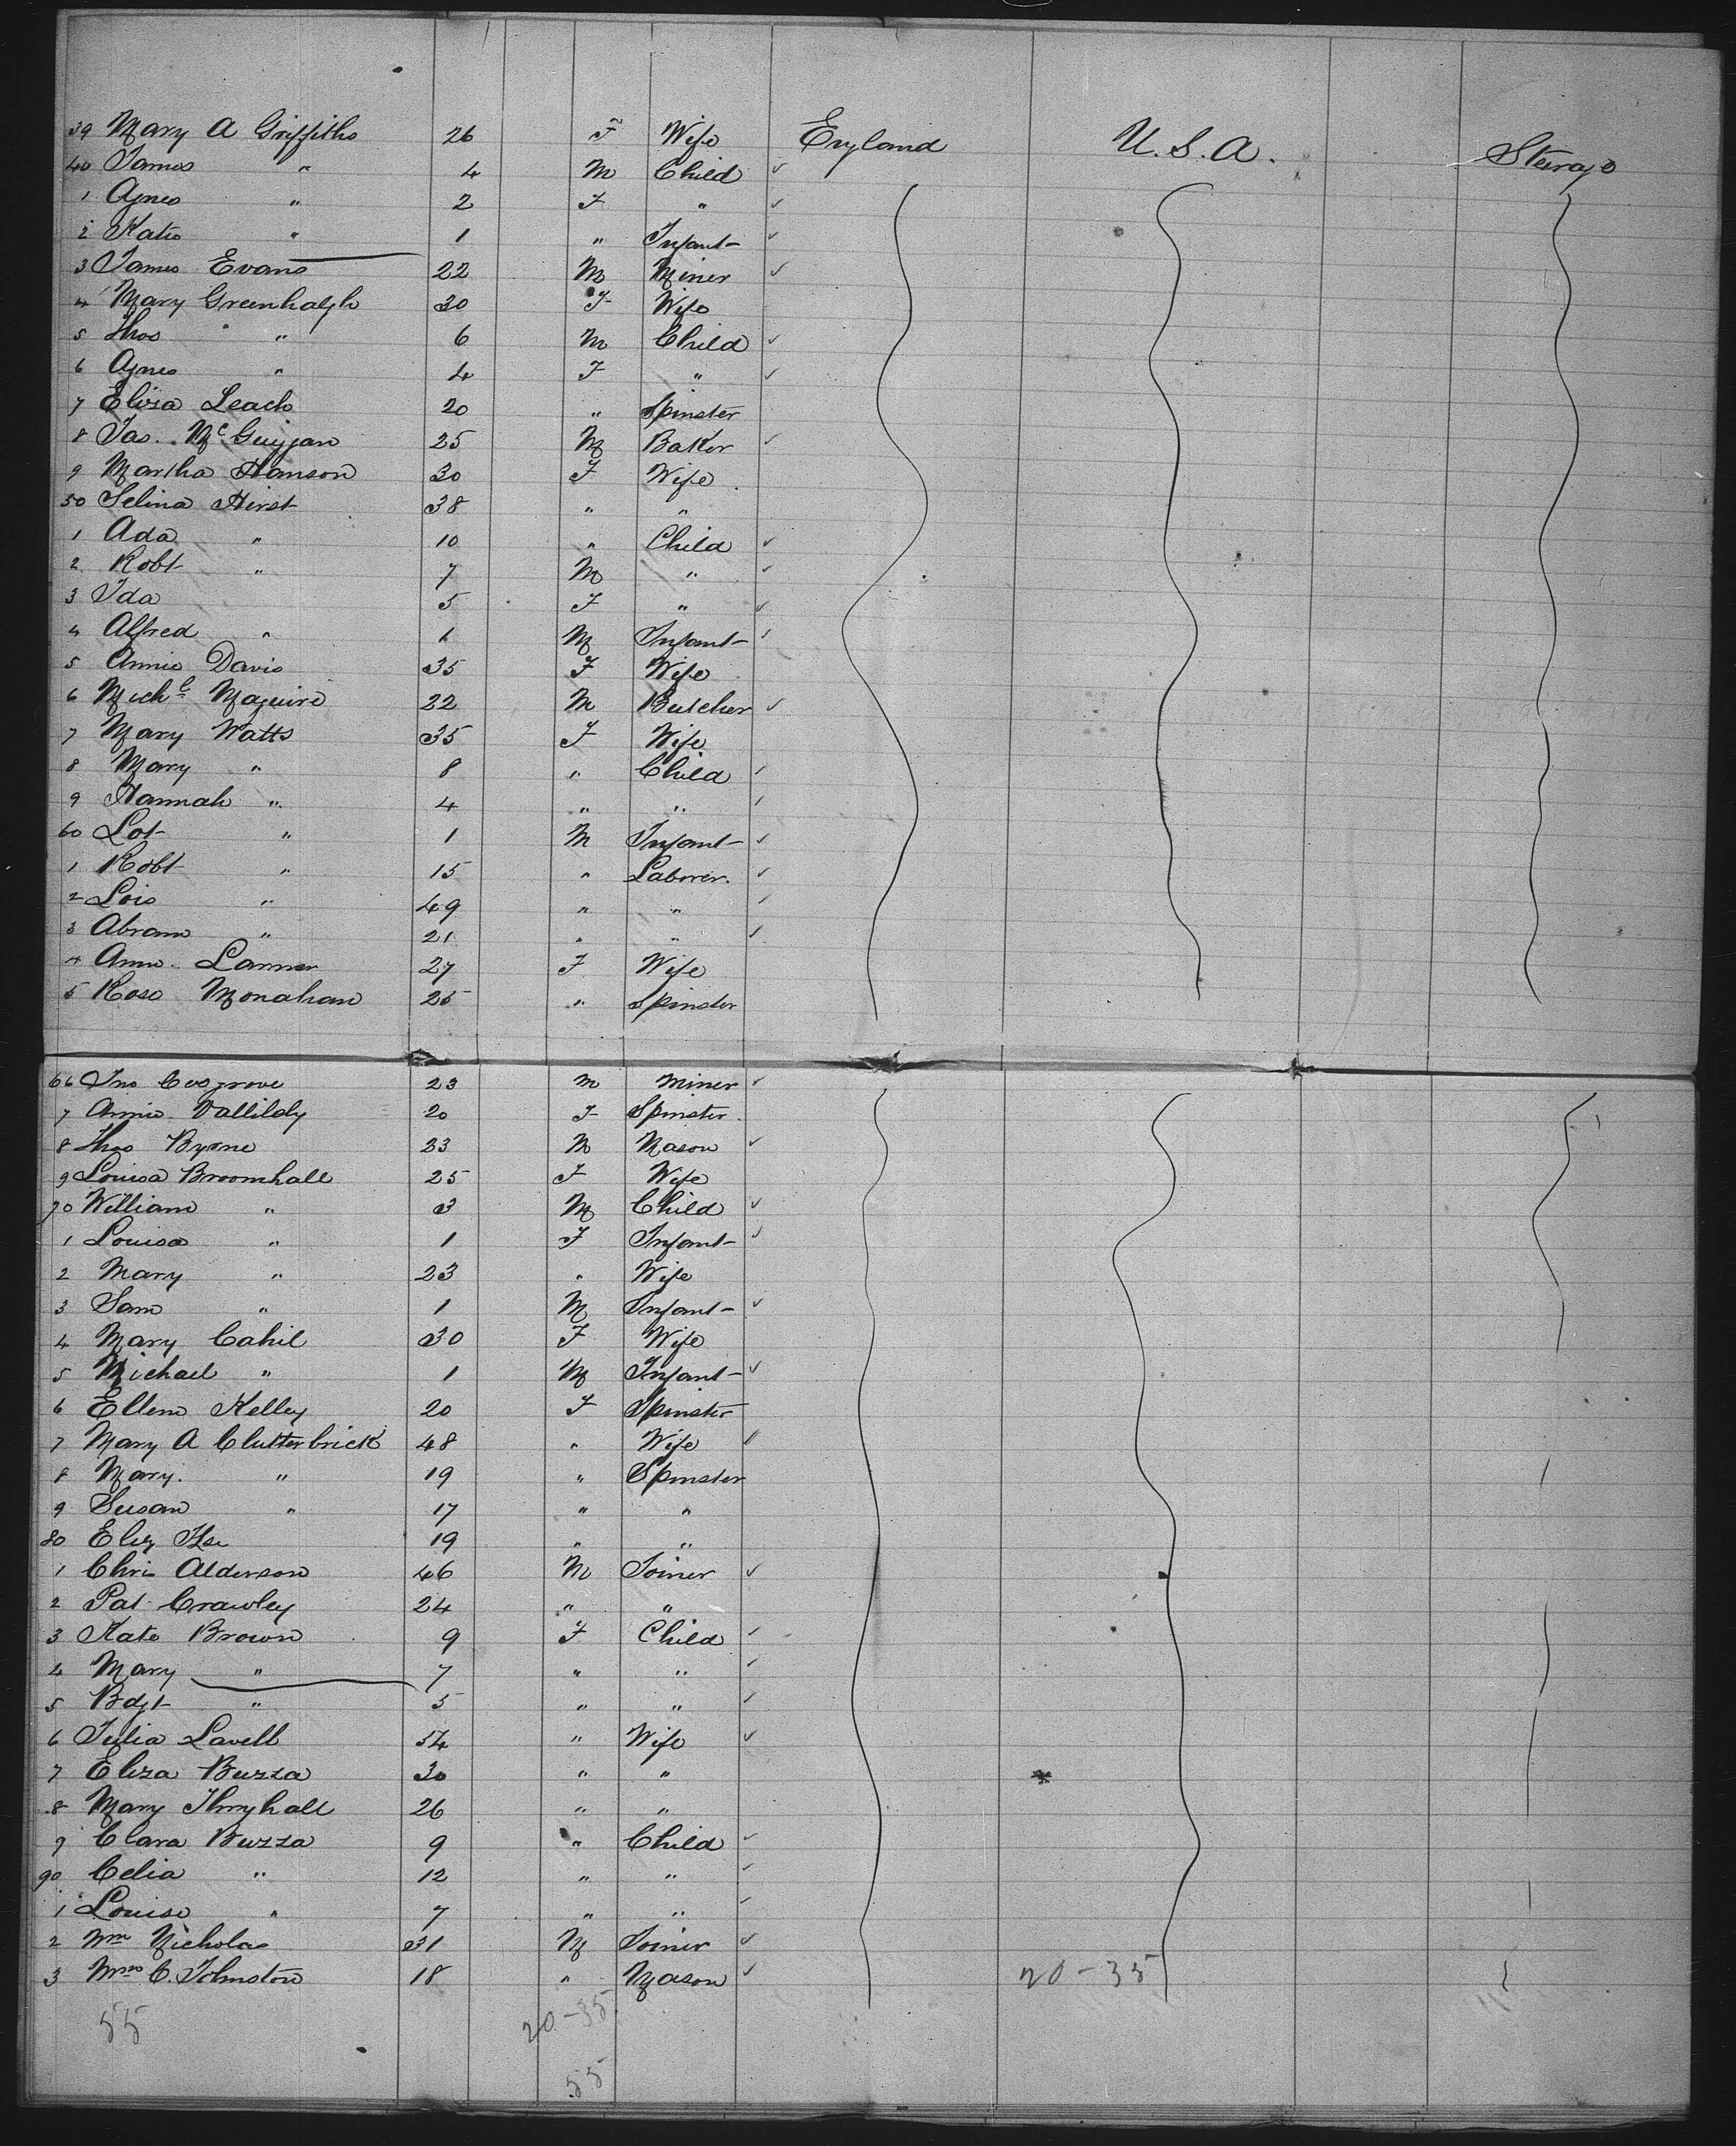 39 Mary A Griffiths 26 F Wife England U.S.A. Steerage
40 James " 4 M Child
1 Agnes " 2 F "
2 Katie " 1 " Infant
3 James Evans 22 M Miner
4 Mary Greenhalgh 30 F Wife
5 Thos " 6 M Child
6 Agnes " 4 F "
7 Eliza Leach 20 " Spinster
8 Jas. McGuigan 25 M Baker
9 Martha Hanson 30 F Wife
50 Selina Hirst 38 " "
1 Ada " 10 " Child
2 Robt " 7 M "
3 Ida 5 F "
4 Alfred " 1 M Infant
5 Annie Davis 35 F Wife
6 Michl Maguire 22 M Butcher
7 Mary Watts 35 F Wife
8 Mary " 8 " Child
9 Hannah " 4 " "
60 Lot " 1 M Infant
1 Robt " 15 " Laborer.
2 Lois " 49 " "
3 Abram " 21 " "
4 Ann Larmer 27 F Wife
5 Rose Monahan 25 " Spinster
66 Jno Cosgrove 23 M Miner
7 Annie 20 F Spinster
8 Thos Byrne 23 M Mason
9 Louisa Broomhall 25 F Wife
70 William " 3 M Child
1 Louisa " 1 F Infant
2 Mary " 23 " Wife
3 Sam " 1 M Infant
4 Mary Cahil 30 F Wife
5 Michael " 1 M Infant
6 Ellen Kelley 20 F Spinster
7 Mary A Clutterbrick 48 " Wife
8 Mary. " 19 " Spinster
9 Susan " 17 " "
80 Eliz 19 " "
1 Chris Alderson 46 M Joiner
2 Pat Crawley 24 " "
3 Kate Brown 9 F Child
4 Mary " 7 " "
5 Bdgt " 5 " "
6 Julia Lavell 54 " Wife
7 Eliza Buzza 30 " "
8 Mary 26 " "
9 Clara Buzza 9 " Child
90 Celia " 12 " "
1 Louise " 7 " "
2 Wm Nicholas 31 M Joiner
3 C. Johnston 18 " Mason 20-35
55 20-35
55